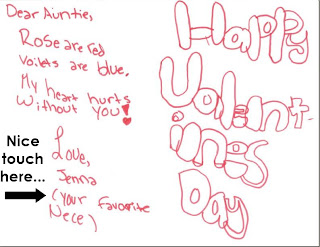 Dear Auntie,
Rose are red
Voilets are blue.
My heart hurts
without you!
Love,
Jenna
(your favorite
Nece)
Nice
touch
here...
Happy
Valent-
ines
Day